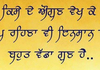 ਕਿਸੇ ਦੇ ਔਗੁਣ ਵੇਖ ਕੇ
ਚੁੱਪ ਰਹਿਣਾ ਵੀ ਇਨਸਾਨ ਦਾ
ਬਹੁਤ ਵੱਡਾ ਗੁਣ ਹੈ..